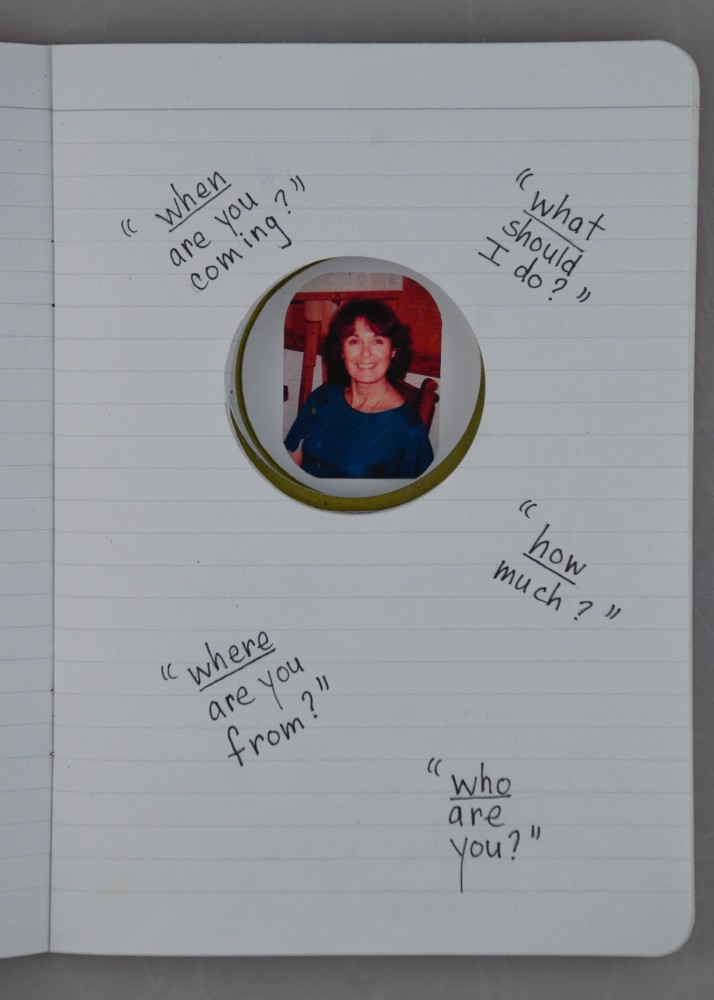 "when
are you
coming?"
"what
should
I do?"
"how
much?"
"where
are you
from?"
"who
are
you?"